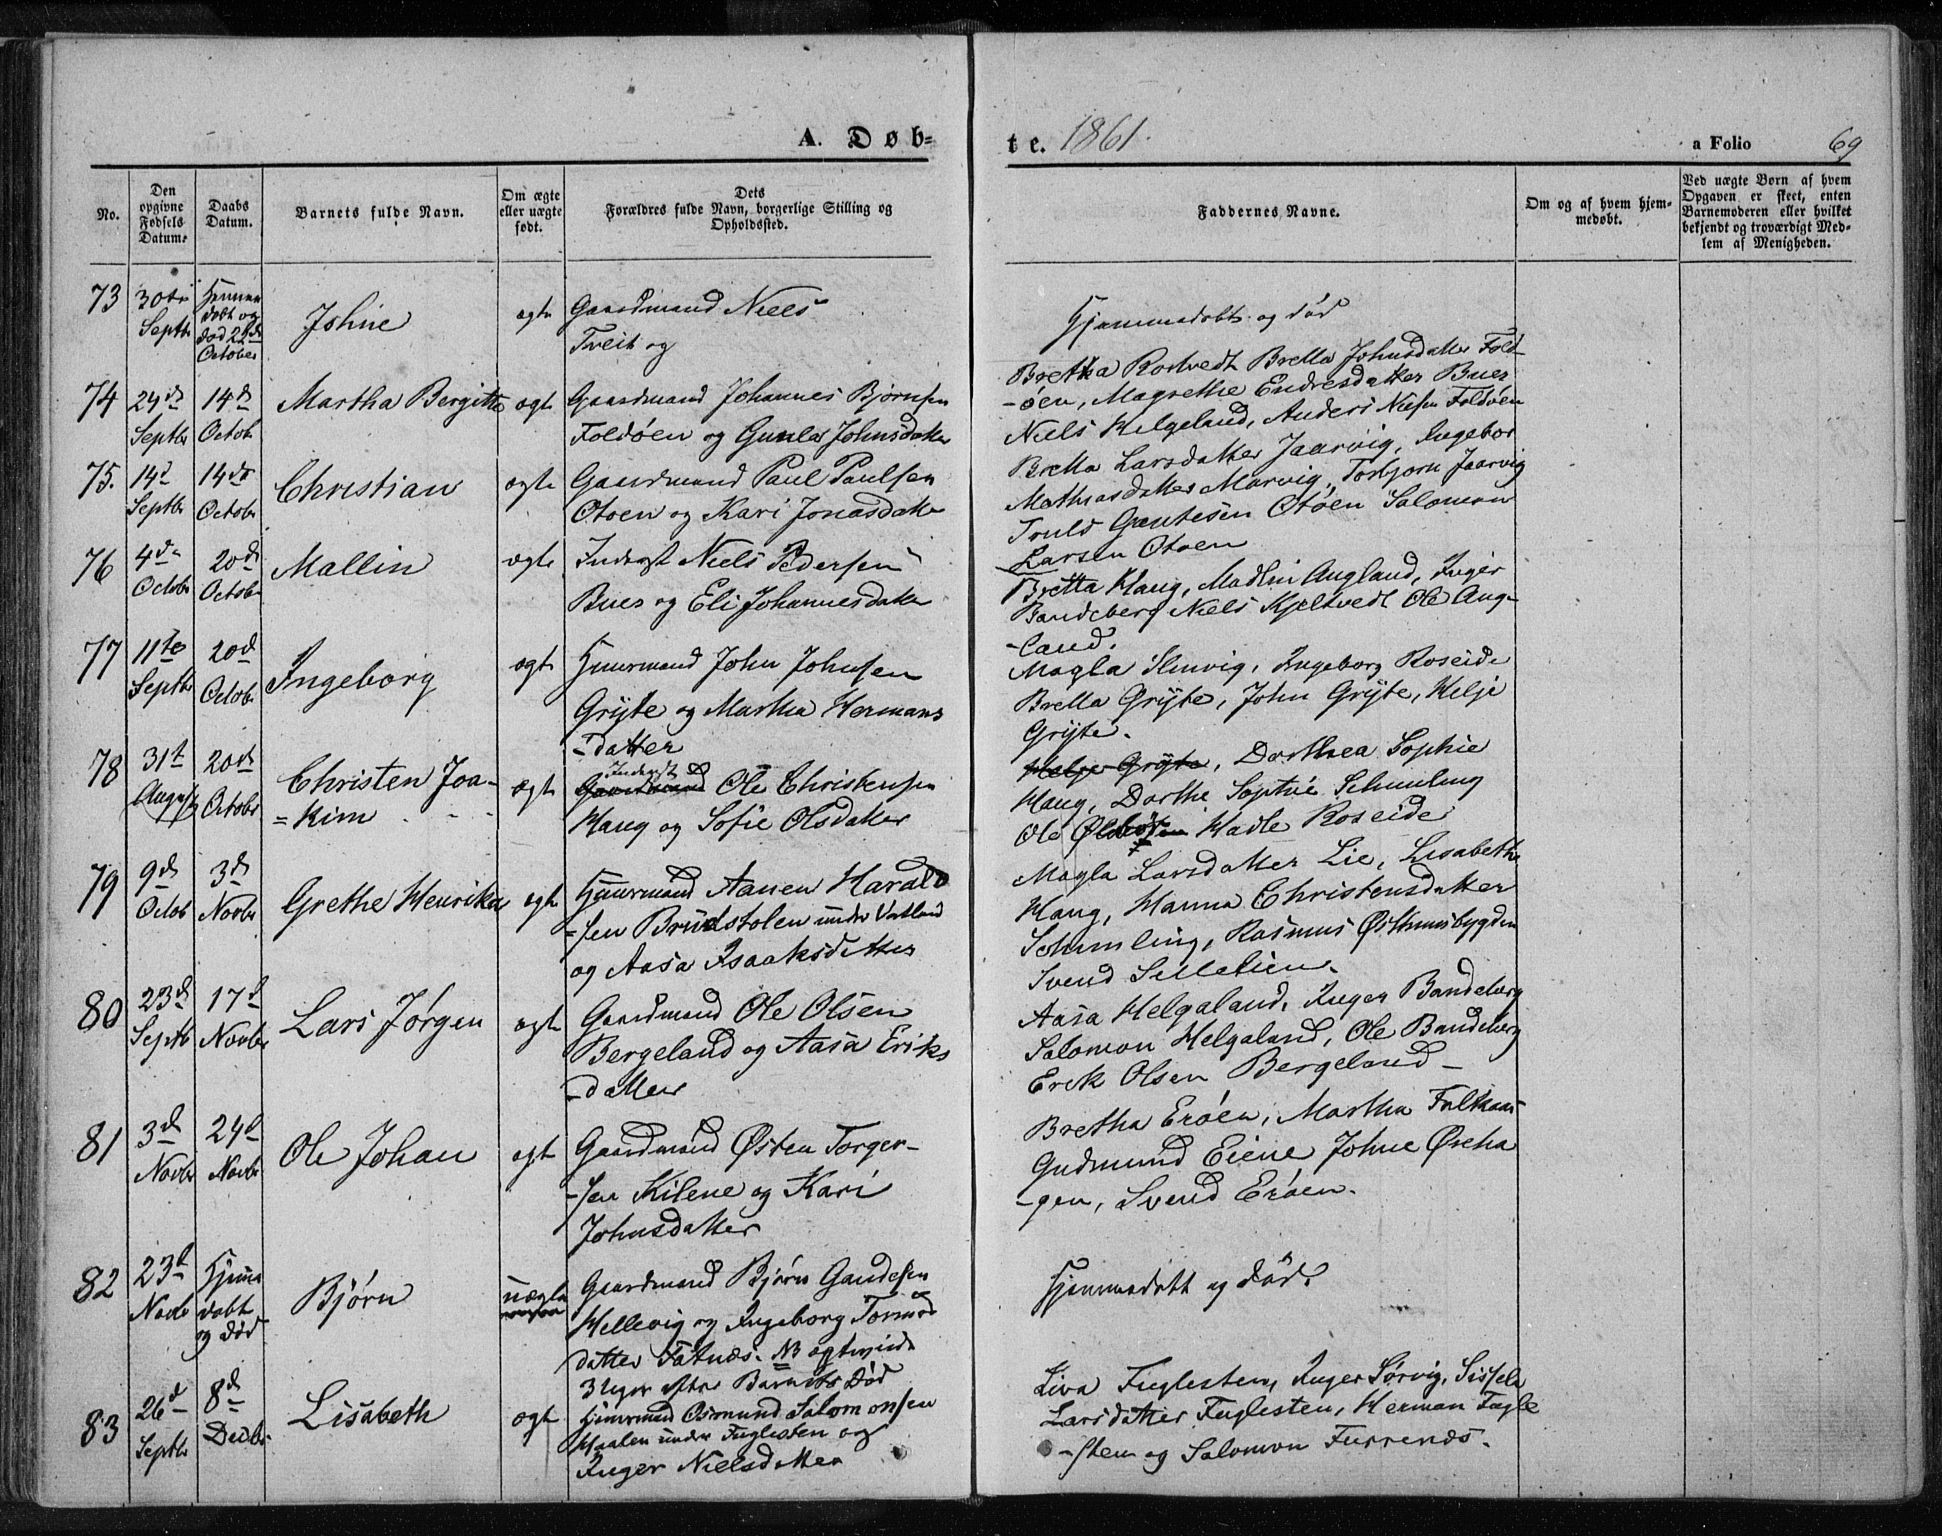 A. Døb=
te. 1861.
a Folio 69
No.
Den opgivne Fødsels Datum.
Daabs Datum.
Barnets fulde Navn.
Om ægte eller uægte født.
Dets Forældres fulde Navn, borgerlige Stilling og Opholdssted.
Faddernes Navne.
Om og af hvem hjem-
medøbt.
Ved uægte Børn af hvem
Opgaven er skeet, enten
Barnemoderen eller hvilket
bekjendt og troværdigt Med-
lem af Menigheden.
73 30te Septbr
døbt og død 22de October
Johne
ægte
Gaardmand Niels
Tveit og
Hjemmedøbt og død
74 29de Septbr 14de Octob
Martha Bergitte
ægte
Gaardmand Johannes Bjørnsen
Foldøen og Gunla Johnsdatter
Bretha Rostvedt Bretta Johnsdatter Fold-
-øen, Magrethe Endresdatter Buer
Niels Helgeland, Anders Nielsen Foldøen
75. 14d Septbr 14de Octobr
Christian
ægte
Gaardmand Paul Paulsen
Otøen og Kari Jonasdatter
Bretta Larsdatter Jaarvig, Ingebor
Mathiasdatter Marvig, Torbjørn Jaarvig
Truls Gautesen Otøen Salomon
Larsen Otøen
76 4de Octobr 20de Octobr
Mallin
ægte
Inderst Niels Pedersen
Buer og Eli Johannesdatter
Bretta Haug, Madlin Augland, Inger
Bandeberg Niels Kjeltvedt Ole Aug-
-land.
77 11te Septbr 20d Octobr
Ingeborg
ægte
Huusmand John Johnsen
Gryte og Martha Hermans
-datter
Magla Slenvig, Ingeborg Roseide
Bretta Gryte, John Gryte, Helje
Gryte.
78 31t August 20de Octobr
Christen Joa-
=kim
ægte
Inderst
Gaardmand Ole Christensen
Haug og Sofie Olsdatter
Helje Gryte, Dorthea Sophie
Haug, Dorthe Sophie Schmling
Ole Hadle Roseide
79 9de Octob 3de Novbr
Grethe Henrika
ægte
Huusmand Aanen Harald
=sen Brudstolen under Vatland
og Aasa Isaaksdatter
Magla Larsdatter Lie, Lisabethe
Haug, Hanna Christensdatter
Schmling, Rasmus Østhusbygden
Svend
80 23de Septb 17d Novbr
Lars Jørgen
ægte
Gaardmand Ole Olsen
Bergeland og Aasa Eriks
-datter
Aasa Helgaland, Inger Bandeberg
Salomon Helgaland, Ole Bandeberg
Erik Olsen Bergeland
81 3de Novbr 24d Novbr
Ole Johan
ægte
Gaardmand Østen Torger-
-sen Kilene og Kari
Johnsdatter
Bretha Erøen, Martha
Gudmund Eiene Johne Øreha
-gen, Svend Erøen.
82 23d Novbr
døbt
og død
Bjørn
uægte
Gaardmand Bjørn Gaudesen
Hellevig og Ingeborg Tormod
datter Fatnæs. NB ægteviede
3 Uger efter Barnets Død
Hjemmedøbt og død.
83 26de Septbr 8de Decbr
Lisabeth
ægte
Huusmand Osmund Salomonsen
Haalen under Fuglesten og
Inger Nielsdatter
Liva Fuglesten, Inger Sørvig, Sissela
Larsdatter Fuglesten, Herman Fugle
-sten og Salomon Furrenæs.